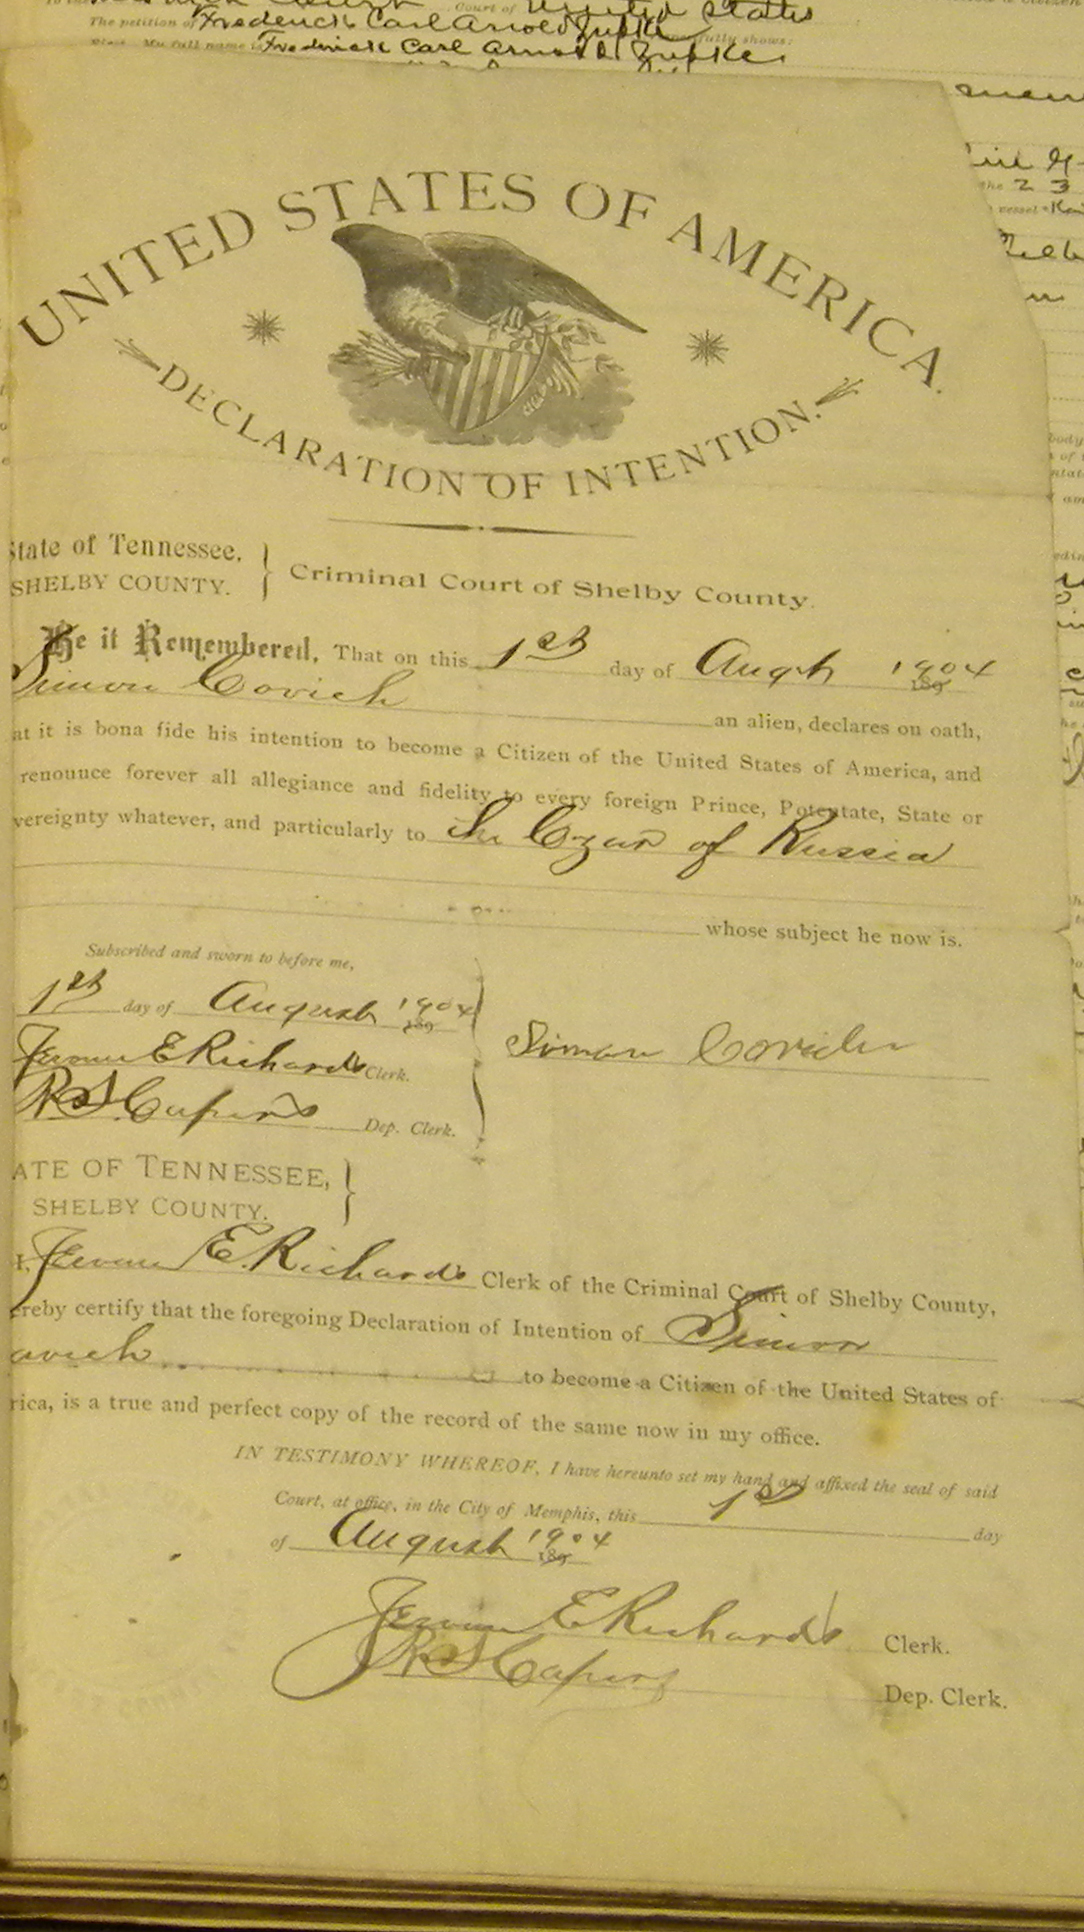 Court of United States
The petition of Frederick Carl Arnold Zupke fully shows:
My full name is Frederick Carl Arnold Zupke
23
vessel
UNITED STATES OF AMERICA.
DECLARATION OF INTENTION.
State of Tennessee,
SHELBY COUNTY.
Criminal Court of Shelby County.
Be it Remembered, That on this 1st day of Augt 1904 189
Simon Covich an alien, declares on oath,
at it is bona fide his intention to become a Citizen of the United States of America, and
renounce forever all allegiance and fidelity to every foreign Prince, Potentate, State or
vereignty whatever, and particularly to The Czar of Russia
whose subject he now is.
Subscribed and sworn to before me,
1st day of August 1904 189
E Richards Clerk.
R S Capers Dep. Clerk.
Simon Covich
ATE OF TENNESSEE,
SHELBY COUNTY.
I, E. Richards Clerk of the Criminal Court of Shelby County,
ereby certify that the foregoing Declaration of Intention of Simon
ovich to become a Citizen of the United States of
rica, is a true and perfect copy of the record of the same now in my office.
IN TESTIMONY WHEREOF, I have hereunto set my hand and affixed the seal of said
Court, at office, in the City of Memphis, this 1st day
of August 1904 189
E Richards Clerk.
R S Capers Dep. Clerk.